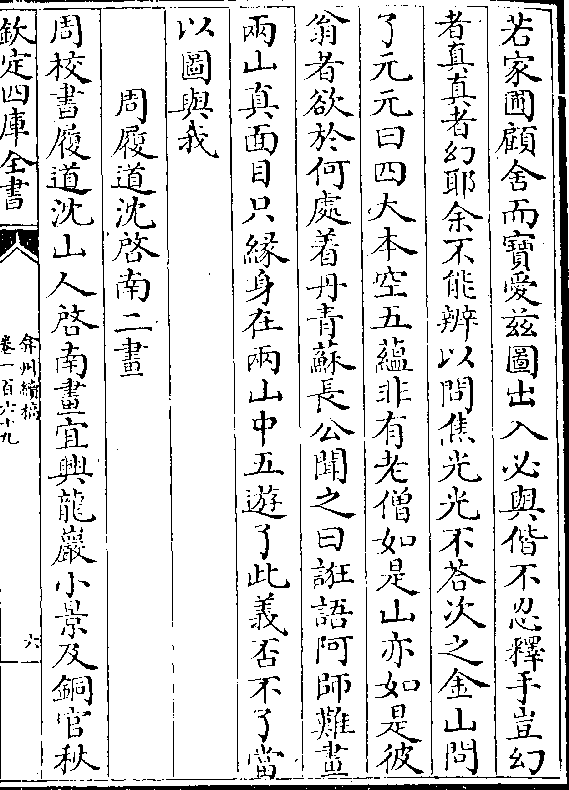 若家圃顧舍而寶愛兹圖出入必與偕不忍釋手豈幻
者真真者幻耶余不能辨以問焦光光不荅次之金山問
了元元曰四大本空五藴非有老僧如是山亦如是彼
翁者欲於何處着丹青蘇長公聞之曰誑語阿師難畫
兩山真面目只縁身在兩山中五遊了此義否不了當
以圖與我
周履道沈啓南二畫
周校書履道沈山人啓南畫宜興龍巖小景及銅官秋
欽定四庫全書
弇州續稿
卷一百六十九
六